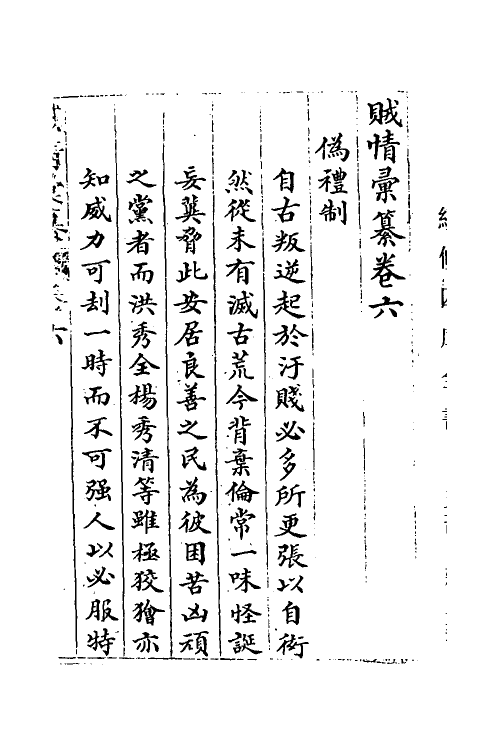 賊情彙纂卷六
偽禮制
自古叛逆起於汙賤必多所更張以自衒
然從未有滅古荒今背棄倫常一味怪誕
妄冀脅此安居良善之民為彼困苦凶頑
之黨者而洪秀全楊秀清等雖極狡獪亦
知威力可刦一時而不可强人以必服特